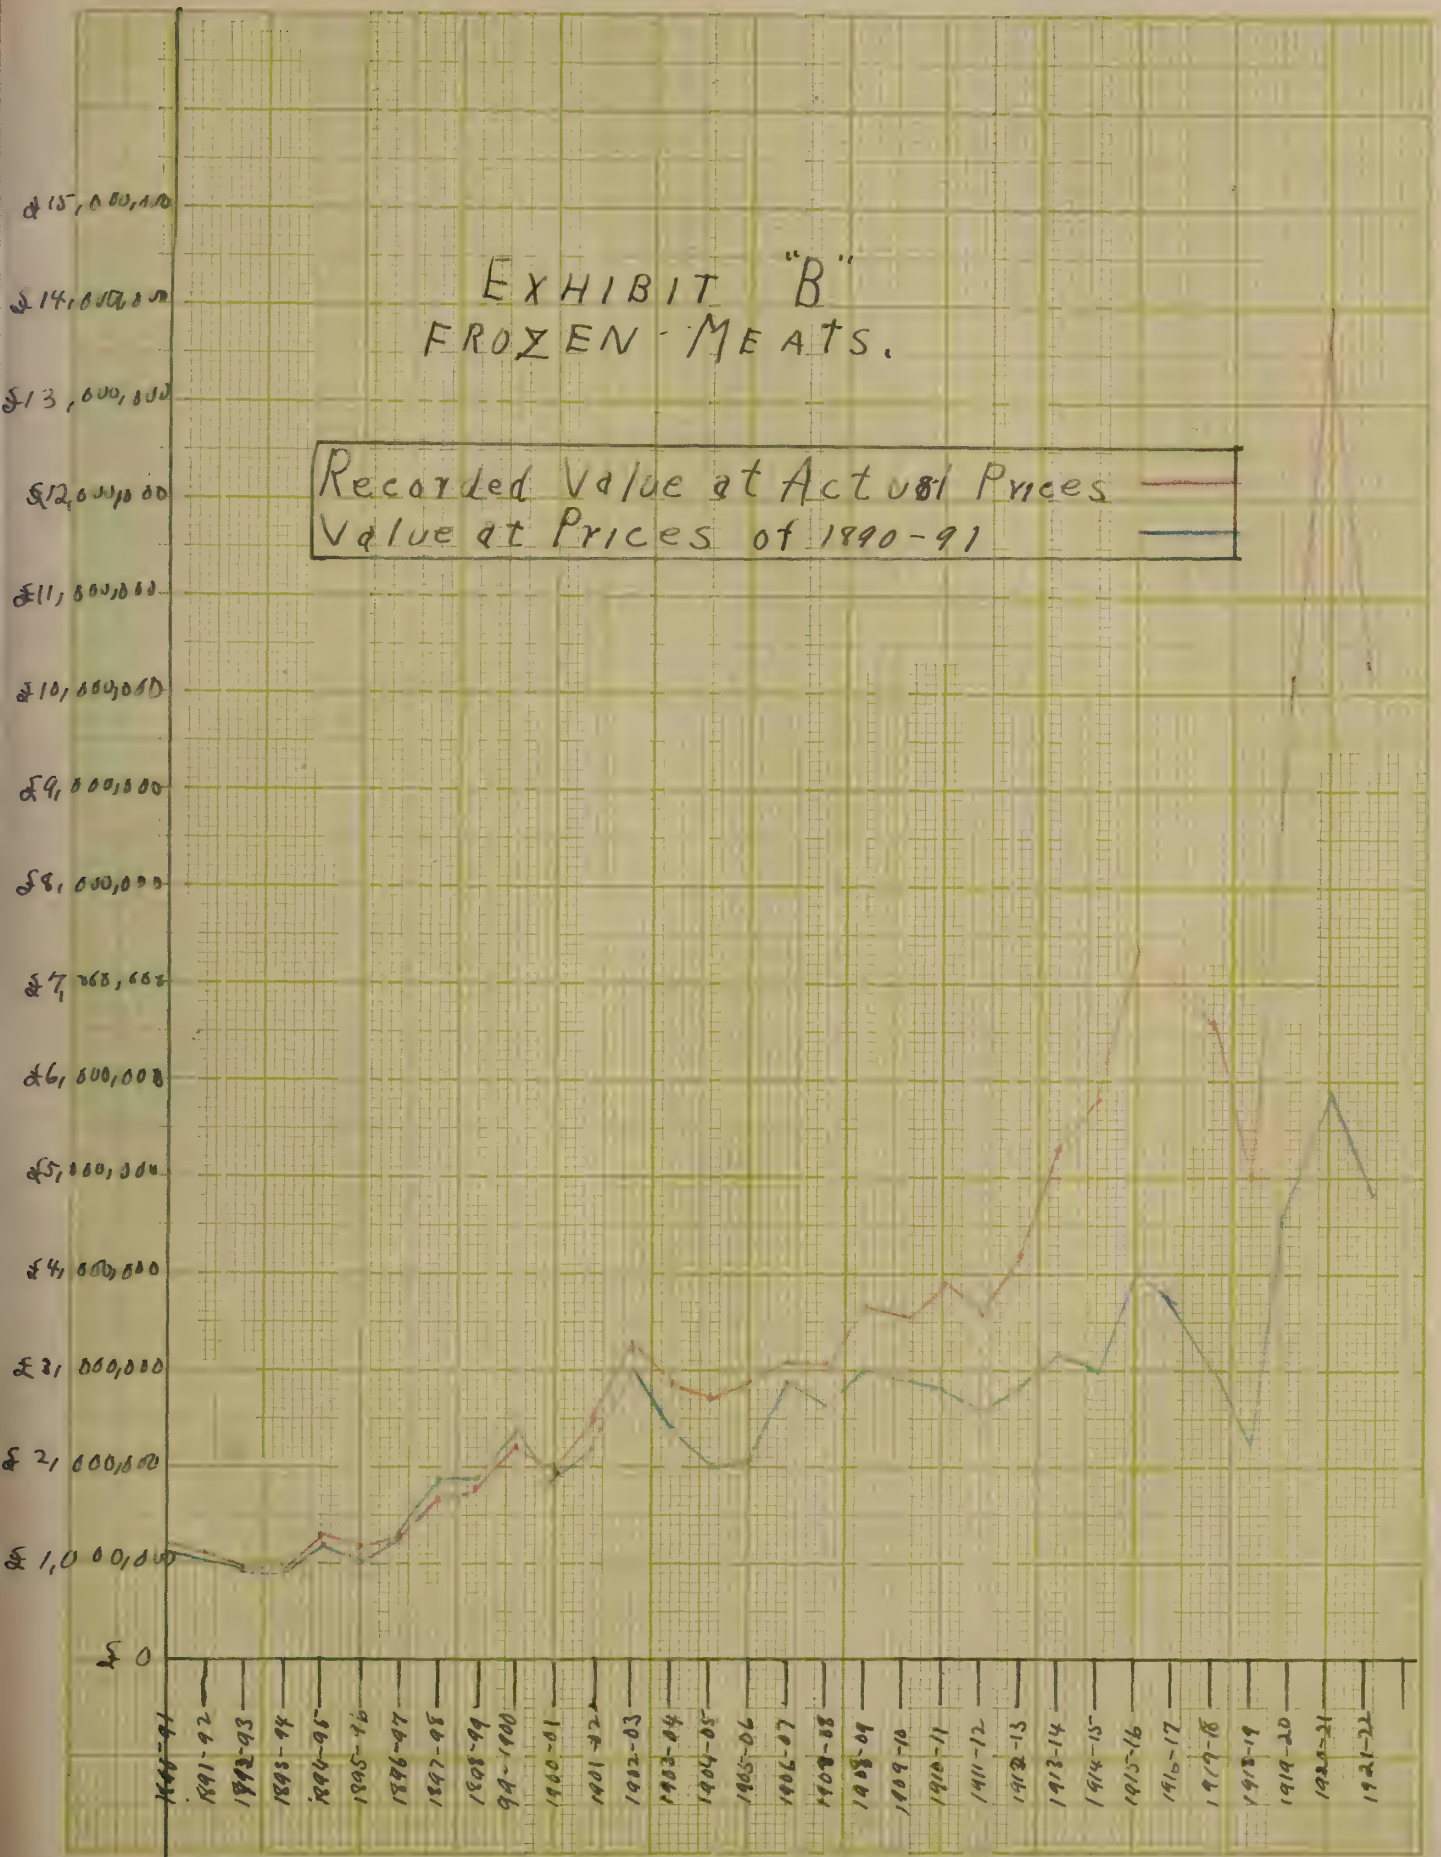 £15,000,000
EXHIBIT "B"
£14,000,000
FROZEN-MEATS.
£13,000,000
Recorded Value at Actual Prices
£12,000,000
Value at Prices of 1890-91
£11,000,000
£10,000,000
£9,000,000
£8,000,000
£7,000,000
£6,000,000
£5,000,000
£4,000,000
£3,000,000
£2,000,000
£1,000,000
£0
1891-92
1892-93
1893-94
1894-95
1895-96
1896-97
1897-98
1898-99
99-1900
1900-01
1901-02
1902-03
1903-04
1904-05
1905-06
1906-07
1908-08
1908-09
1909-10
1910-11
1911-12
1912-13
1913-14
1914-15
1915-16
1916-17
1917-18
1918-19
1919-20
1920-21
1921-22